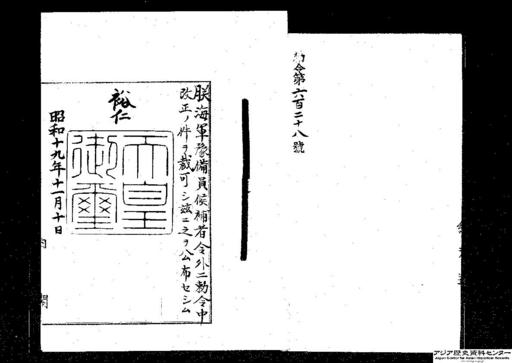 勅令第六百二十八號
朕海軍豫備員候補者令外二勅令中
改正ノ件ヲ裁可シ茲ニ之ヲ公布セシム
裕仁
天皇
御璽
昭和十九年十一月十日
内閣
アジア歴史資料センター
Japan Center for Asian Historical Records